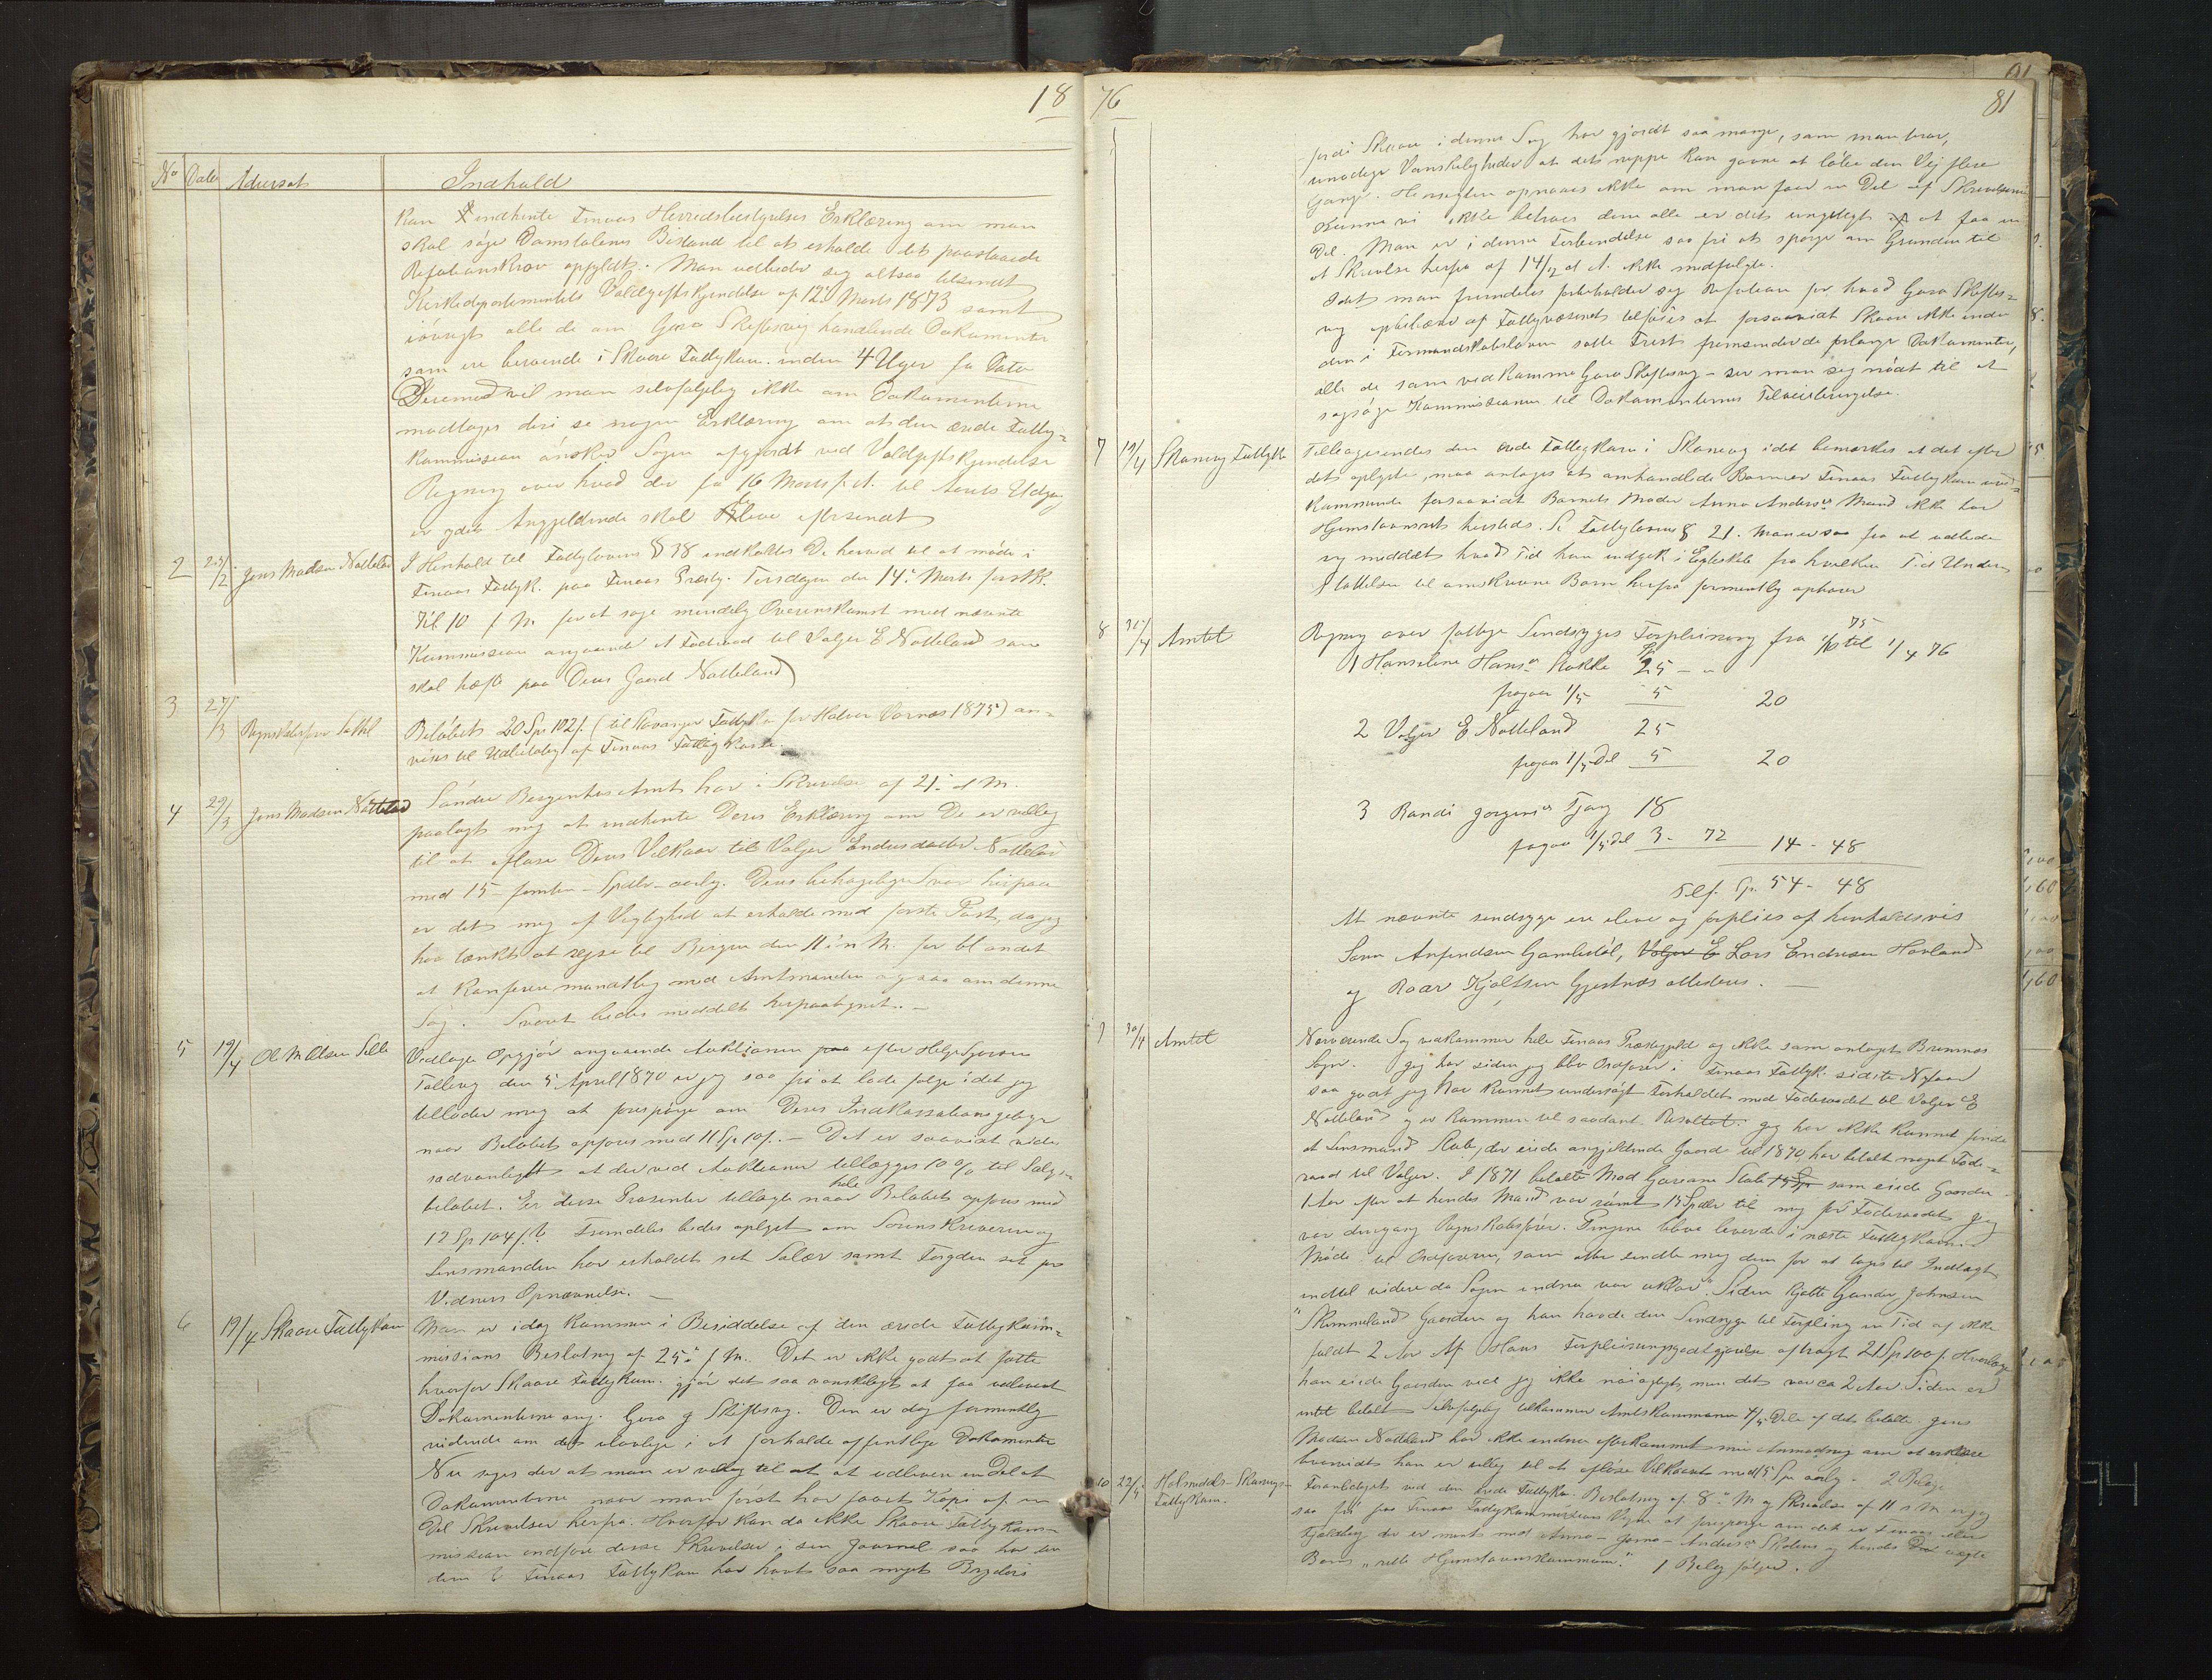 18
No Dato Adressat Indhold
kan indhente Finaas Herredsbestyrelses Erklæring om man
skal söge Domstolenes Bistand til at erholde det paastaaede
Refusionskrav opfyldt. Man udbeder sig altsaa tilsendt
Kirkedepartementets Voldgiftskjendelse af 12te Marts 1873 samt
iövrigt alle de om Gora Skiftesvig handlende Dokumenter
som ere beroende i Skaare Fattigkom. inden 4 Uger fra Dato
Derimod vil man selvfölgelig ikke om Dokumenterne
modtages deri se nogen Erklæring om at den ærede Fattig-
kommission önsker Sagen afgjordt ved Voldgiftskjendelse
Regning over hvad der fra 16 Marts f. A. til Aarets Udgang
er ydet Angjeldende skal blive eftersendt
2 23/2 Jens Madsen Notteland I Henhold til Fattiglovens § 38 indkaldes De herved til at möde i
Finaas Fattigk. paa Finaas Præstg. Tirsdagen den 14de Marts förstk.
Kl. 10 f. M. for at söge mindelig Overenskomst med nævnte
Kommission angaaende et Föderaad til Valger E Notteland som
skal hæfte paa Deres Gaard Notteland)
3 27/3 Regnskabsförer Beløbet 20 Sp 102 s. (til Kosanger Fattigk. for Halvor Vornæs 1875) an-
vises til Udbetaling af Finaas Fattigkasse
4 29/3 Jens Madsen Notteland Söndre Bergenhus Amt har i Skrivelse af 21de d. M.
paalagt mig at indhente Deres Erklæring om De er villig
til at aflöse Deres Vilkaar til Valger Endresdatter Notteland
med 15 - femten - Spdlr - aarlig. Deres behagelige Svar herpaa
er det mig af Vigtighed at erholde med förste Post, da jeg
har tænkt at rejse til Bergen den 11 i n. M. for bl andet
at konferere mundtlig med Amtmanden ogsaa om denne
Sag. Svaret bedes meddelt herpaategnet. —
5 19/4 Ole M Olsen Selle Vedlagte Opgjör angaaende Auktionen paa efter Helge
den 5 April 1870 er jeg saa fri at lade fölge idet jeg
tillader mig at forespörge om Deres Indkassationsgebyr
naar Belöbet opföres med 11 Sp 10 s. — Det er saavidt vides
sædvanligt at der ved Auktioner tillægges 10 % til Salgs-
belöbet. Er disse Prosenter tillagte naar hele Belöbet opföres med
12 Sp 104 s.? Fremdeles bedes oplyst om Sorenskriveren og
Lensmanden har erholdt sit Salær samt Fogden sit for
Vidners Opnævnelse. —
6 19/4 Skaare Fattigkom Man er idag kommen i Besiddelse af den ærede Fattigkom-
missions Beslutning af 25de f. M. Det er ikke godt at fatte
hvorfor Skaare Fattigkom. gjör det saa vanskeligt at faa udleveret
Dokumenterne ang. Gora Skiftesvig. Den er dog formentlig
vidende om det ulovlige i at forholde offentlige Dokumenter
Nu siges der at man er villig til at at udlevere en Del af
Dokumenterne naar man först har faaet Kopi af en
Del Skrivelser herfra. Hvorfor kan da ikke Skaare Fattigkom-
mission indföre disse Skrivelser i sin Journal saa har den
dem? Finaas Fattigkom har havt saa meget Bryderi
76 81
fordi Skaare i denne Sag har gjordt saa mange, som man tror,
unödige Vanskeligheder at det neppe kan gavne at löbe den Vej flere
Gange. Hensigten opnaaes ikke om man faar en Del af Skrivelserne
Kunne vi ikke behöves dem alle er det ungelegt at faa en
Del. Man er i denne Forbindelse saa fri at spörge om Grunden til
at Skrivelse herfra af 14/12 d. A. ikke medfulgte.
Idet man fremdeles forbeholder sig Refusion for hvad Gora Skiftes-
vig af Fattigvæsenet tilföies at forsaavidt Skaare ikke inden
den i Formandskabsloven satte Frist fremsender de forlangte Dokumenter,
alle de som vedkomme Gora Skiftesvig - ser man sig nödt til at
sagsöge Kommissionen til Dokumenternes Tilveiebringelse.
7 19/4 Skanevig Fattigk Tilbagesendes den ærede Fattigkom i Skanevig idet bemærkes at det efter
det oplyste, maa antages at omhandlede Barn er Finaas Fattigkom ved-
kommende forsaavidt Barnets Moder Anna Andersdr Mand ikke har
Hjemstavnsret hersteds. Se Fattiglovens § 21. Man er saa fri at udbede
sig meddelt hvad Tid hun indgik i Egteskab fra hvilken Tid Under-
stöttelsen til omskrevne Barn herfra formentlig ophörer
8 30/4 Amtet Regning over fattige Sindsyges Forpleining fra 1/10 75 til 1/4 76
1 Hanseline Hansdr Rokke Sp 25 - "
fragaar 1/5 5 20
2 Valger E Notteland 25
fragaar 1/5 Del 5 20
3 Randi Jorgensdr Tjong 18
fragaar 1/5 del 3 - 72 14 - 48
Tils. Sp. 54 - 48
At nævnte sindsyge ere ilive og forpleies af henholdsvis
Sören Anfindsen Gambedöl, Valger E Lars Endresen Hovland
og Roar Kjoltsen Gjertnæs attesteres. —
9 30/4 Amtet Nærværende Sag vedkommer hele Finaas Præstegjeld og ikke som antaget Bremnes
Sogn. Jeg har siden jeg blev Ordförer i Finaas Fattigk. sidste Nytaar
saa godt jeg har kunnet undersögt Forholdet med Föderaadet til Valger E
Notteland og er kommen til saadant Resultat: jeg har ikke kunnet finde
at Lensmand Stub, der eiede angjeldende Gaard til 1870 har betalt noget Föde-
raad til Valger. I 1871 betalte Mad Gurine Stub 15 Sp som eiede Gaarden
1 Aar efter at hendes Mand var römt 15 Spdlr til mig for Föderaadet jeg
var dengang Regnskabsförer. Pengene bleve leverede i næste Fattigkom-
Möde til Ordföreren, som atter sendte mig dem for at tages til Indtægt
indtil videre da Sagen endnu var uklar. Siden kjöbte Gunder Johnsen
Skimmeland Gaarden og han havde den Sindsyge til Forpleining en Tid af ikke
fuldt 2 Aar Af Hans Forpleiningsgodtgjörelse aftrogs 21 Sp 100 s. Hvorlænge
han eiede Gaarden ved jeg ikke nöiagtigt, men det var ca 2 Aar. Siden er
intet betalt Selvfölgelig tilkommer Amtskommunen 4/5 Dele af det betalte. Jens
Madsen Notteland har ikke endnu efterkommet min Anmodning om at erklære
hvorvidt han er villig til at aflöse Vilkaaret med 15 Spd aarlig. — 2 Bilage
10 22/5 Holmedals - Skanevigs - Fattigkom. Foranlediget ved den ærede Fattigko. Beslutning af 8de d. M og Skrivelse af 11 s. M er jeg
saa fri paa Finaas Fattigkommissions Vegne at forespörge om det er Finaas eller
Fjelberg der er ment med Anna - Gurina - Andersdr Skolens og hendes uægte
Barns "rette Hjemstavnskommune." 1 Bilag fölger.